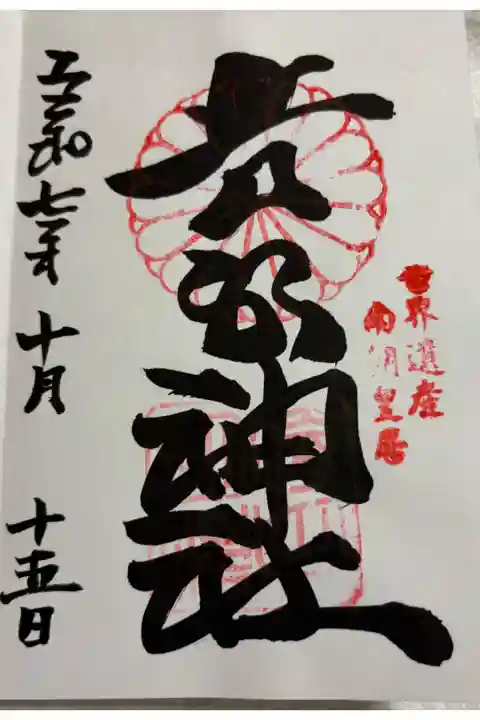 世界遺産
南朝皇居
吉水神社
令和七年十月十五日